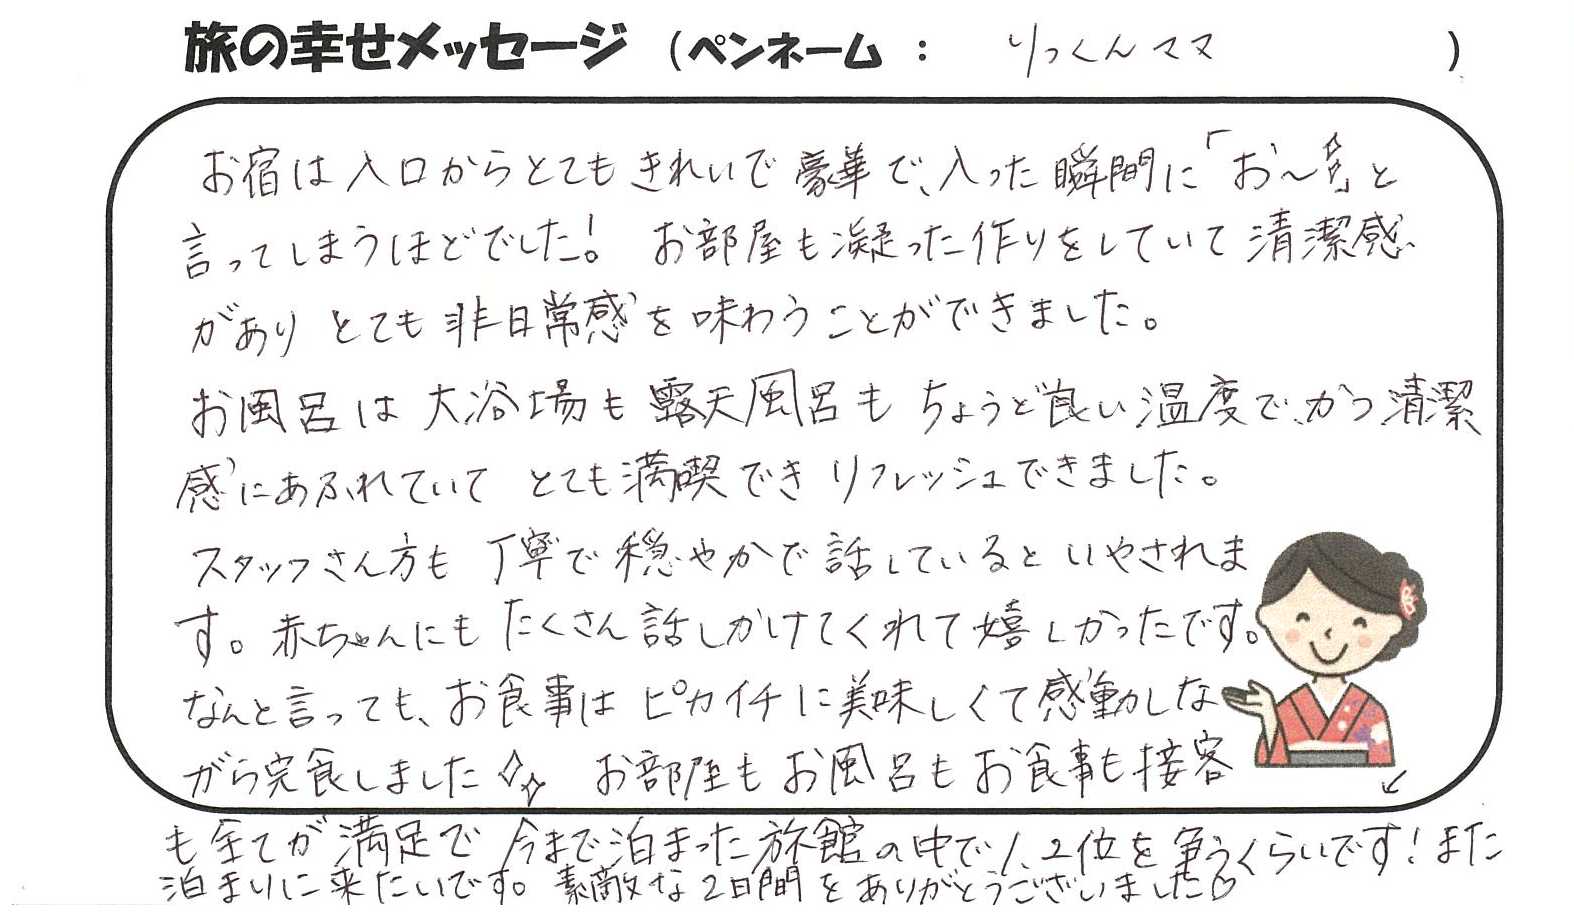 旅の幸せメッセージ (ペンネーム : りっくんママ )
お宿は入口からとてもきれいで豪華で、入った瞬間に「お〜✨」と
言ってしまうほどでした! お部屋も凝った作りをしていて清潔感
があり とても非日常感を味わうことができました。
お風呂は大浴場も露天風呂もちょうど良い温度で、かつ清潔
感にあふれていて とても満喫でき リフレッシュできました。
スタッフさん方も 丁寧で穏やかで話しているといやされま
す。赤ちゃんにもたくさん話しかけてくれて嬉しかったです。
なんと言っても、お食事はピカイチに美味しくて感動しな
がら完食しました✨ お部屋もお風呂もお食事も接客
も全てが満足で 今まで泊まった旅館の中で1、2位を争うくらいです!また
泊まりに来たいです。素敵な2日間をありがとうございました♡